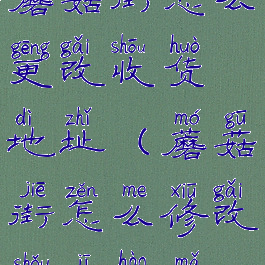 蘑菇街怎么
gēng gǎi shōu huò
更改收货
dì zhǐ mó gū
地址（蘑菇
jiē zěn me xiū gǎi
街怎么修改